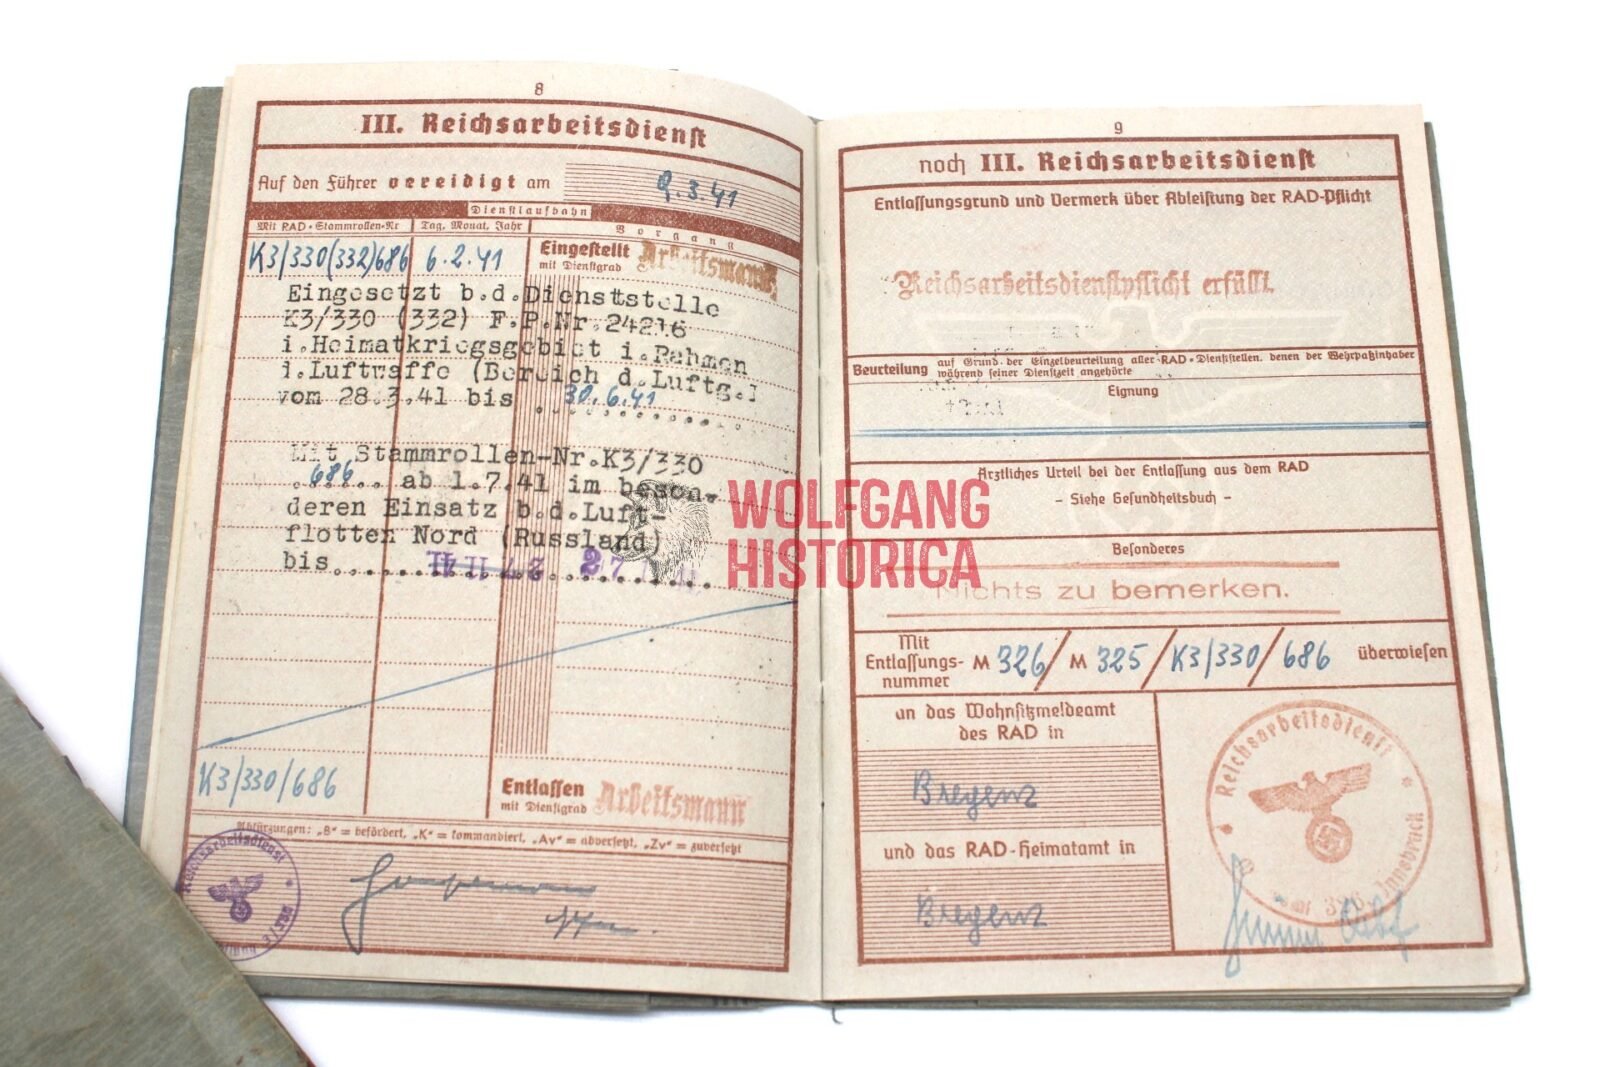 8
III. Reichsarbeitsdienst
Auf den Führer vereidigt am 9.3.41
Dienstlaufbahn
Mit RAD-Stammrollen-Nr Tag, Monat, Jahr Vorgang
K3/330(332)686 6.2.41 Eingestellt Arbeitsmann
mit Dienstgrad
Eingesetzt b.d.Dienststelle
K3/330 (332) F.P.Nr.24216
i.Heimatkriegsgebiet i.Rahmen
d.Luftwaffe (Bereich d.Luftg.I
vom 28.3.41 bis 30.6.41
Mit Stammrollen-Nr.K3/330
.686... ab 1.7.41 im beson-
deren Einsatz b.d.Luft-
flotten Nord (Russland)
bis
K3/330/686
Entlassen Arbeitsmann
mit Dienstgrad
Abkürzungen: „B" = befördert, „K" = kommandiert, „Av" = abversetzt, „Zv" = zuversetzt
Reichsarbeitsdienst
9
noch III. Reichsarbeitsdienst
Entlassungsgrund und Vermerk über Ableistung der RAD-Pflicht
Reichsarbeitsdienstpflicht erfüllt.
Beurteilung auf Grund der Einzelbeurteilung aller RAD-Dienststellen, denen der Wehrpaßinhaber
während seiner Dienstzeit angehörte
Eignung
Ärztliches Urteil bei der Entlassung aus dem RAD
- Siehe Gesundheitsbuch -
Besonderes
Nichts zu bemerken.
Mit
Entlassungs-
nummer
M 326/ M 325/K3/330/686 überwiesen
an das Wohnsitzmeldeamt
des RAD in
Bregenz
und das RAD-Heimatamt in
Bregenz
Reichsarbeitsdienst
Innsbruck
WOLFGANG
HISTORICA